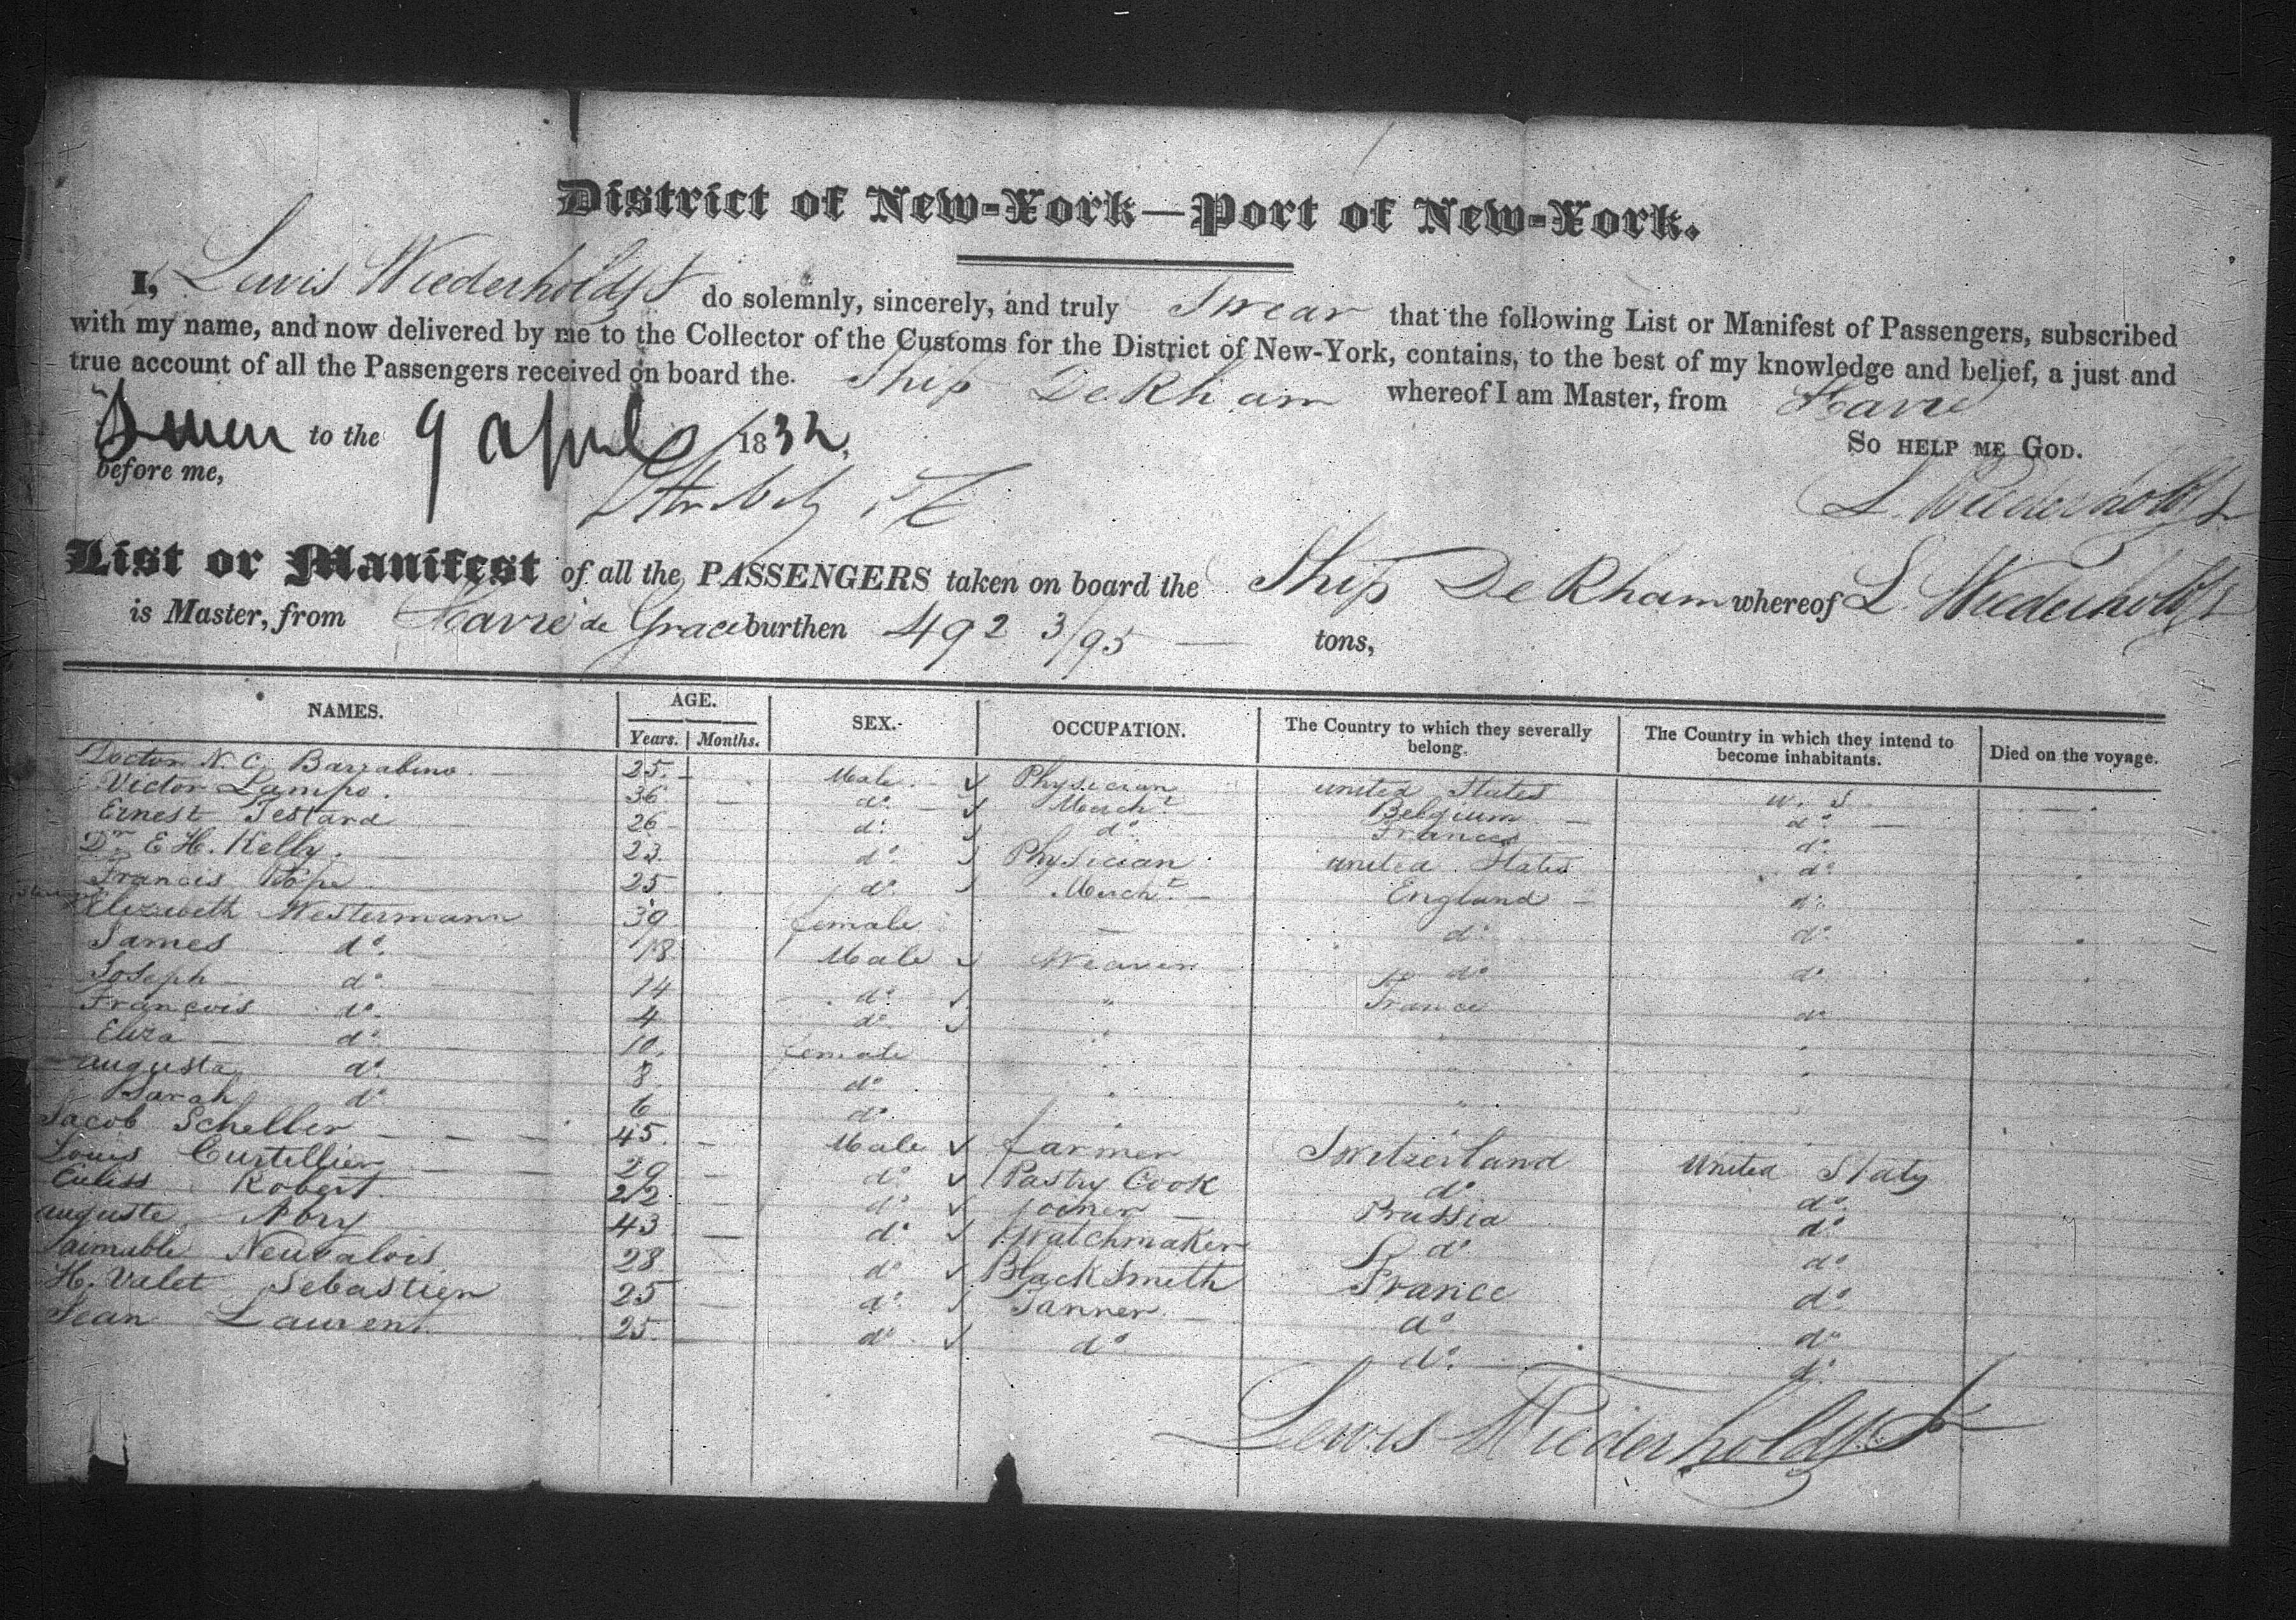 District of New-York—Port of New-York.
I, Lewis Wiederholdt do solemnly, sincerely, and truly Swear that the following List or Manifest of Passengers, subscribed
with my name, and now delivered by me to the Collector of the Customs for the District of New-York, contains, to the best of my knowledge and belief, a just and
true account of all the Passengers received on board the Ship De Rham whereof I am Master, from Havre
Sworn to the 9 April 1832, So help me God.
before me, L. Wiederholdt
List or Manifest of all the PASSENGERS taken on board the Ship De Rham whereof L. Wiederholdt
is Master, from Havre de Grace burthen 492 3/95 tons,
NAMES. AGE. Years. Months. SEX. OCCUPATION. The Country to which they severally belong. The Country in which they intend to become inhabitants. Died on the voyage.
Doctor N. C. Barrabino 25 Male Physician united States u. S
Victor Lampo. 36 do. Mercht Belgium do.
Ernest Testard 26 do. do. France do.
Dr. E H. Kelly. 23 do. Physician united States do.
Francis Pope 25 do. Mercht England do.
Elizabeth Westermann 39 female — do. do.
James do. 18 Male Weaver do. do.
Joseph do. 14 do. " France do.
François do. 4 do. "
Eliza do. 10 female "
Augusta do. 8 do. "
Sarah do. 6 do. "
Jacob Scheller 45 Male farmer Switzerland United States
Louis Curtillier 29 do. Pastry Cook do. do.
Robert 22 do. Joiner Prussia do.
auguste Mory 43 do. Watchmaker do. do.
Jaimable Neuvalois 28 do. Blacksmith France do.
H. Valet Sebastien 25 do. Tanner do. do.
Jean Laurent 25 do. do. do. do.
Lewis Wiederholdt